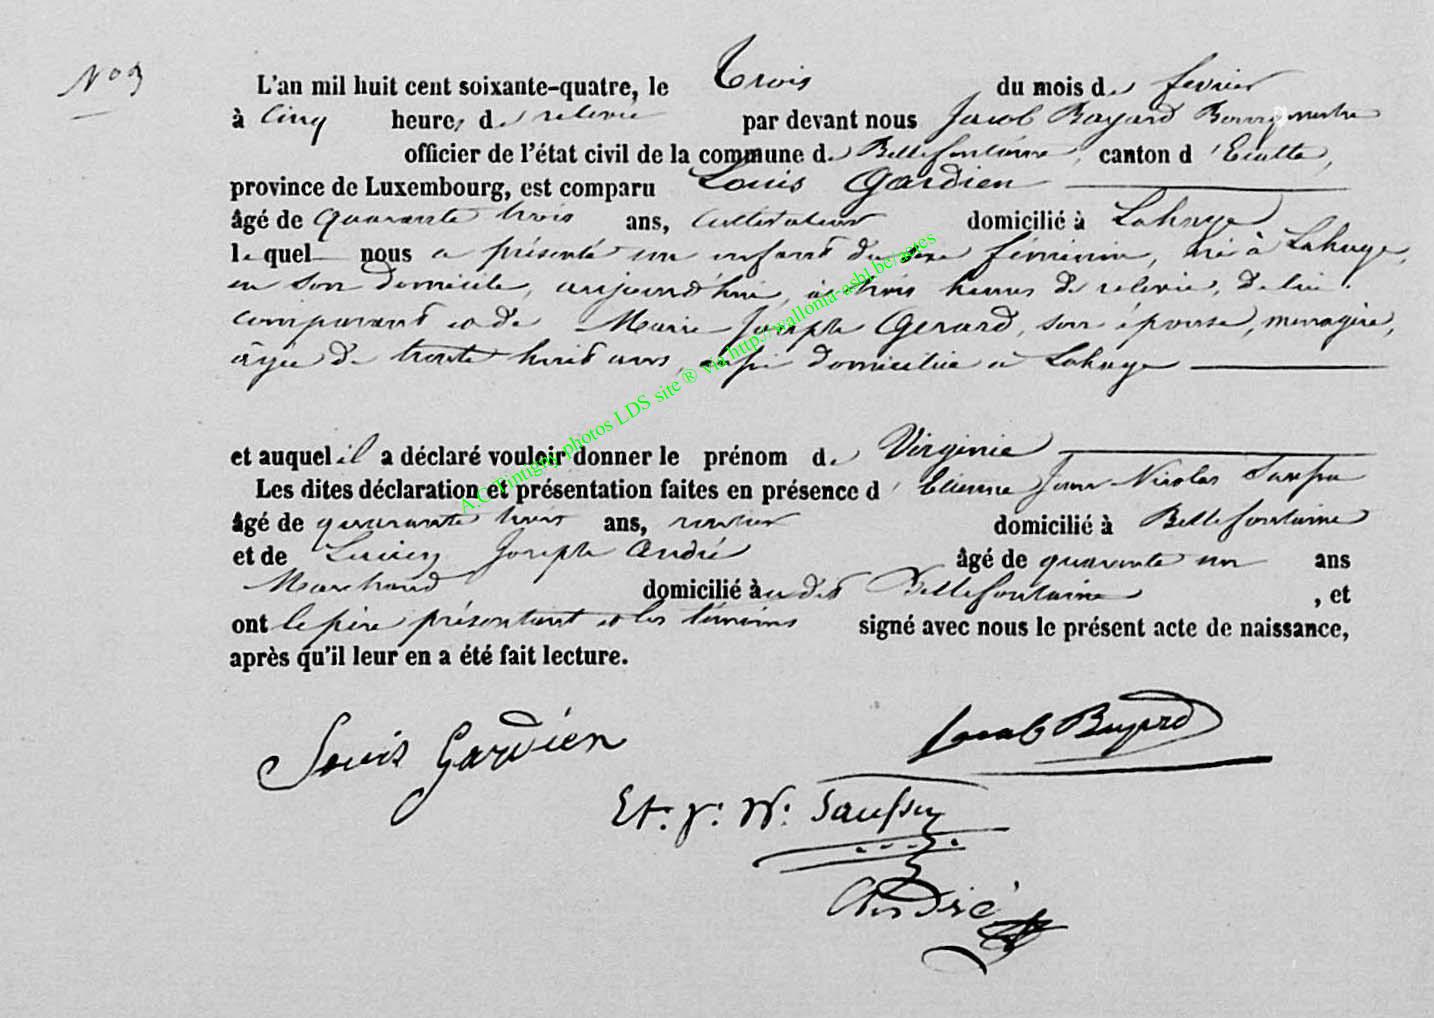 N° 3
L'an mil huit cent soixante-quatre, le Trois du mois de fevrier
à Cinq heures de relevée par devant nous Jacob Bayard Bourgmestre
officier de l'état civil de la commune de Bellefontaine, canton d'Etalle,
province de Luxembourg, est comparu Louis Gardien
âgé de quarante trois ans, cultivateur domicilié à Lahage
lequel nous a présenté un enfant du sexe féminin, né à Lahage,
en son domicile, aujourd'hui, à trois heures de relevée, de lui
comparant et de Marie Josephe Gerard, son épouse, menagère,
âgée de trente huit ans, aussi domiciliée à Lahage
et auquel il a déclaré vouloir donner le prénom de Virginie
Les dites déclaration et présentation faites en présence d'Etienne Jean Nicolas
âgé de quarante trois ans, rentier domicilié à Bellefontaine
et de Lucien Joseph André âgé de quarante un ans
Marchand domicilié à u dit Bellefontaine, et
ont le père présentant et les témoins signé avec nous le présent acte de naissance,
après qu'il leur en a été fait lecture.
Louis Gardien
Jacob Bayard
Et. J. N.
André
A.C.Tintigny photos LDS site ® via http://wallonia-asbl.be/actes